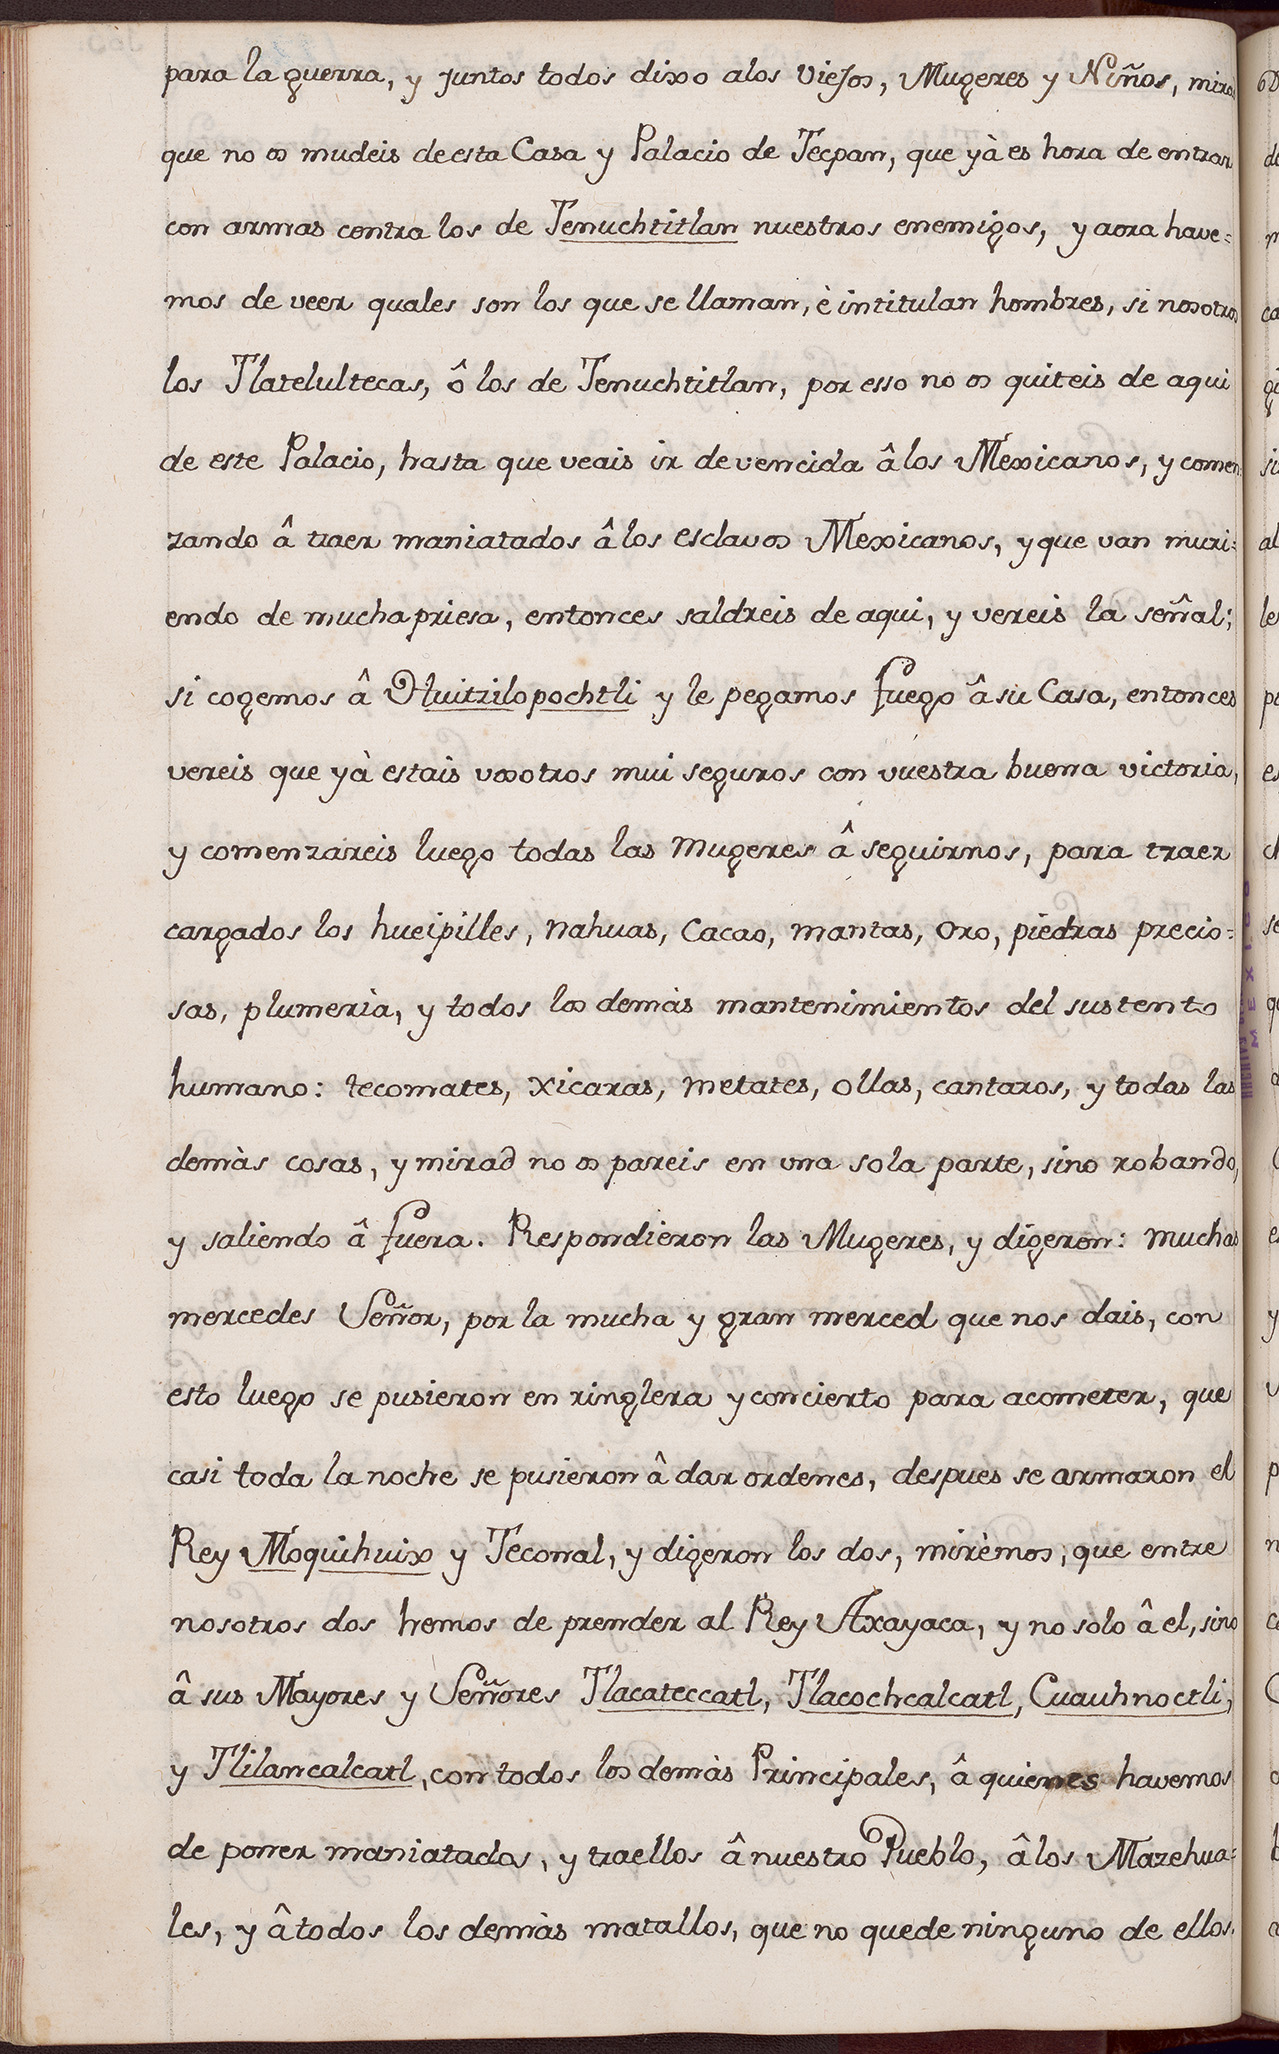 para la guerra, y juntos todos dixo alos Viejos, Mugeres y Niños, mirad
que no os mudeis de esta Casa y Palacio de Tecpan, que yà es hora de entrar
con armas contra los de Tenuchtitlan nuestros enemigos, y aora have=
mos de veer quales son los que se llaman, è intitulan hombres, si nosotros
los Tlatelultecas, ô los de Tenuchtitlan, por esso no os quiteis de aqui
de este Palacio, hasta que veais ir de vencida â los Mexicanos, y comen
zando â traer maniatados â los esclavos Mexicanos, y que van muri=
endo de mucha priesa, entonces saldreis de aqui, y vereis la señal;
si cogemos â Huitzilopochtli y le pegamos fuego â su Casa, entonces
vereis que yà estais vosotros mui seguros con vuestra buena victoria,
y comenzareis luego todas las Mugeres â seguirnos, para traer
cargados los hueipilles, nahuas, Cacao, mantas, Oro, piedras precio=
sas, plumerìa, y todos los demàs mantenimientos del sustento
humano: tecomates, xicaras, metates, ollas, cantaros, y todas las
demàs cosas, y mirad no os pareis en una sola parte, sino robando,
y saliendo â fuera. Respondieron las Mugeres, y digeron: muchas
mercedes Señor, por la mucha y gran merced que nos dais, con
esto luego se pusieron en ringlera y concierto para acometer, que
casi toda la noche se pusieron â dar ordenes, despues se armaron el
Rey Moquihuix y Teconal, y digeron los dos, mirèmos, que entre
nosotros dos hemos de prender al Rey Axayaca, y no solo â el, sino
â sus Mayores y Señores Tlacateccatl, Tlacochcalcatl, Cuauhnoctli,
y Tlilancalcatl, con todos los demàs Principales, â quienes havemos
de poner maniatados, y traellos â nuestro Pueblo, â los Mazehua=
les, y â todos los demàs matallos, que no quede ninguno de ellos.